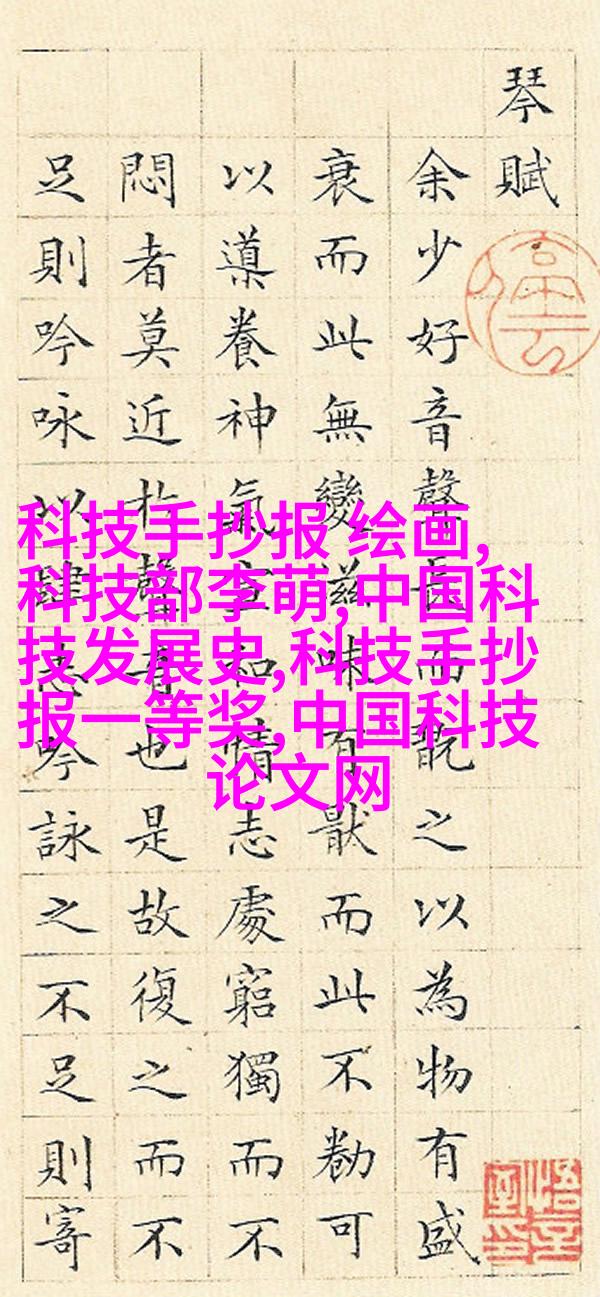 琴賦
余少好音聲長而翫之以為物有盛
衰而此無變滋味有猒而此不勌可
以導養神氣宣和情志處窮獨而不
悶者莫近扵聲音也是故復之而不
足則吟咏以肆志吟詠之不足則寄
科技手抄报 绘画,
科技部李萌,中国科
技发展史,科技手抄
报一等奖,中国科技
论文网